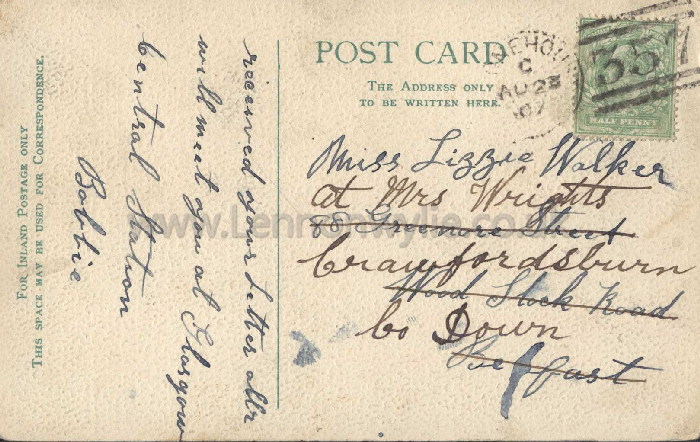 FOR INLAND POSTAGE ONLY
THIS SPACE MAY BE USED FOR CORRESPONDENCE.
received your letter allr
will meet you at Glasgow
Central Station
Bobbie
POST CARD
THE ADDRESS ONLY
TO BE WRITTEN HERE.
C
AU 23
07
35
HALF PENNY
Miss Lizzie Walker
at Mrs Wrights
Street
Crawfordsburn
Wood Stock Road
Co Down
Belfast
www.Lennonwylie.co.uk